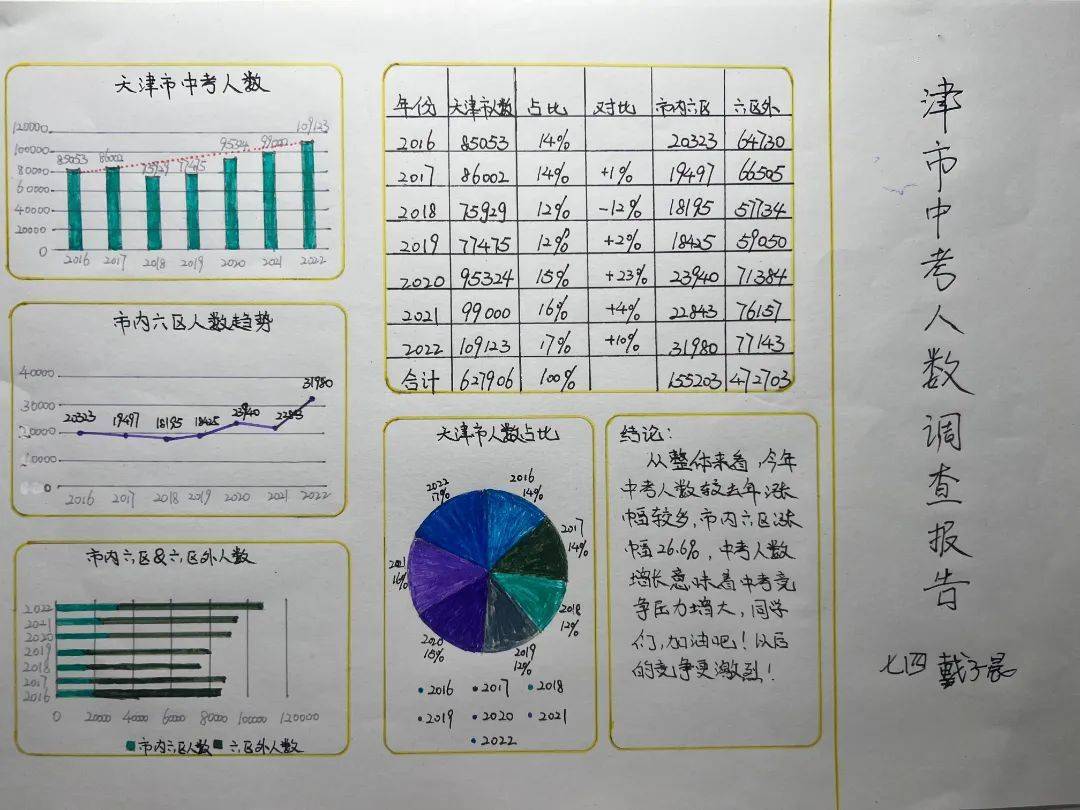 天津市中考人数
120000
100000
80000
60000
40000
20000
0
85053 86002 75929 77475 95324 99000 109123
2016 2017 2018 2019 2020 2021 2022
市内六区人数趋势
40000
30000
20000
10000
0
20323 19497 18195 18425 23940 22843 31980
2016 2017 2018 2019 2020 2021 2022
市内六区&六区外人数
2022
2021
2020
2019
2018
2017
2016
0 20000 40000 60000 80000 100000 120000
市内六区人数 六区外人数
年份 天津市人数 占比 对比 市内六区 六区外
2016 85053 14% 20323 64730
2017 86002 14% +1% 19497 66505
2018 75929 12% -12% 18195 57734
2019 77475 12% +2% 18425 59050
2020 95324 15% +23% 23940 71384
2021 99000 16% +4% 22843 76157
2022 109123 17% +10% 31980 77143
合计 627906 100% 155203 472703
天津市人数占比
2016
14%
2017
14%
2018
12%
2019
12%
2020
15%
2021
16%
2022
17%
•2016 •2017 •2018
•2019 •2020 •2021
•2022
结论：
从整体来看，今年
中考人数较去年涨
幅较多，市内六区涨
幅26.6%，中考人数
增长意味着中考竞
争压力增大，同学
们，加油吧！以后
的竞争更激烈！
津市中考人数调查报告
七四 戴子晨